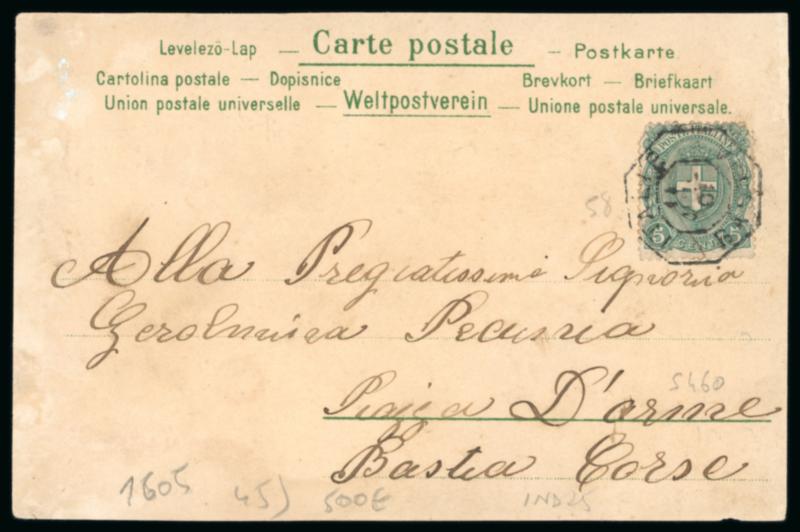 Levelezö-Lap — Carte postale — Postkarte
Cartolina postale — Dopisnice Brevkort — Briefkaart
Union postale universelle — Weltpostverein — Unione postale universale.
POSTE ITALIANE
5 CENT. 5
58
Alla Pregiatissima Signoria
Gerolmina
5460
D'arme
Bastia Corse
1605 45) 500€ IND25